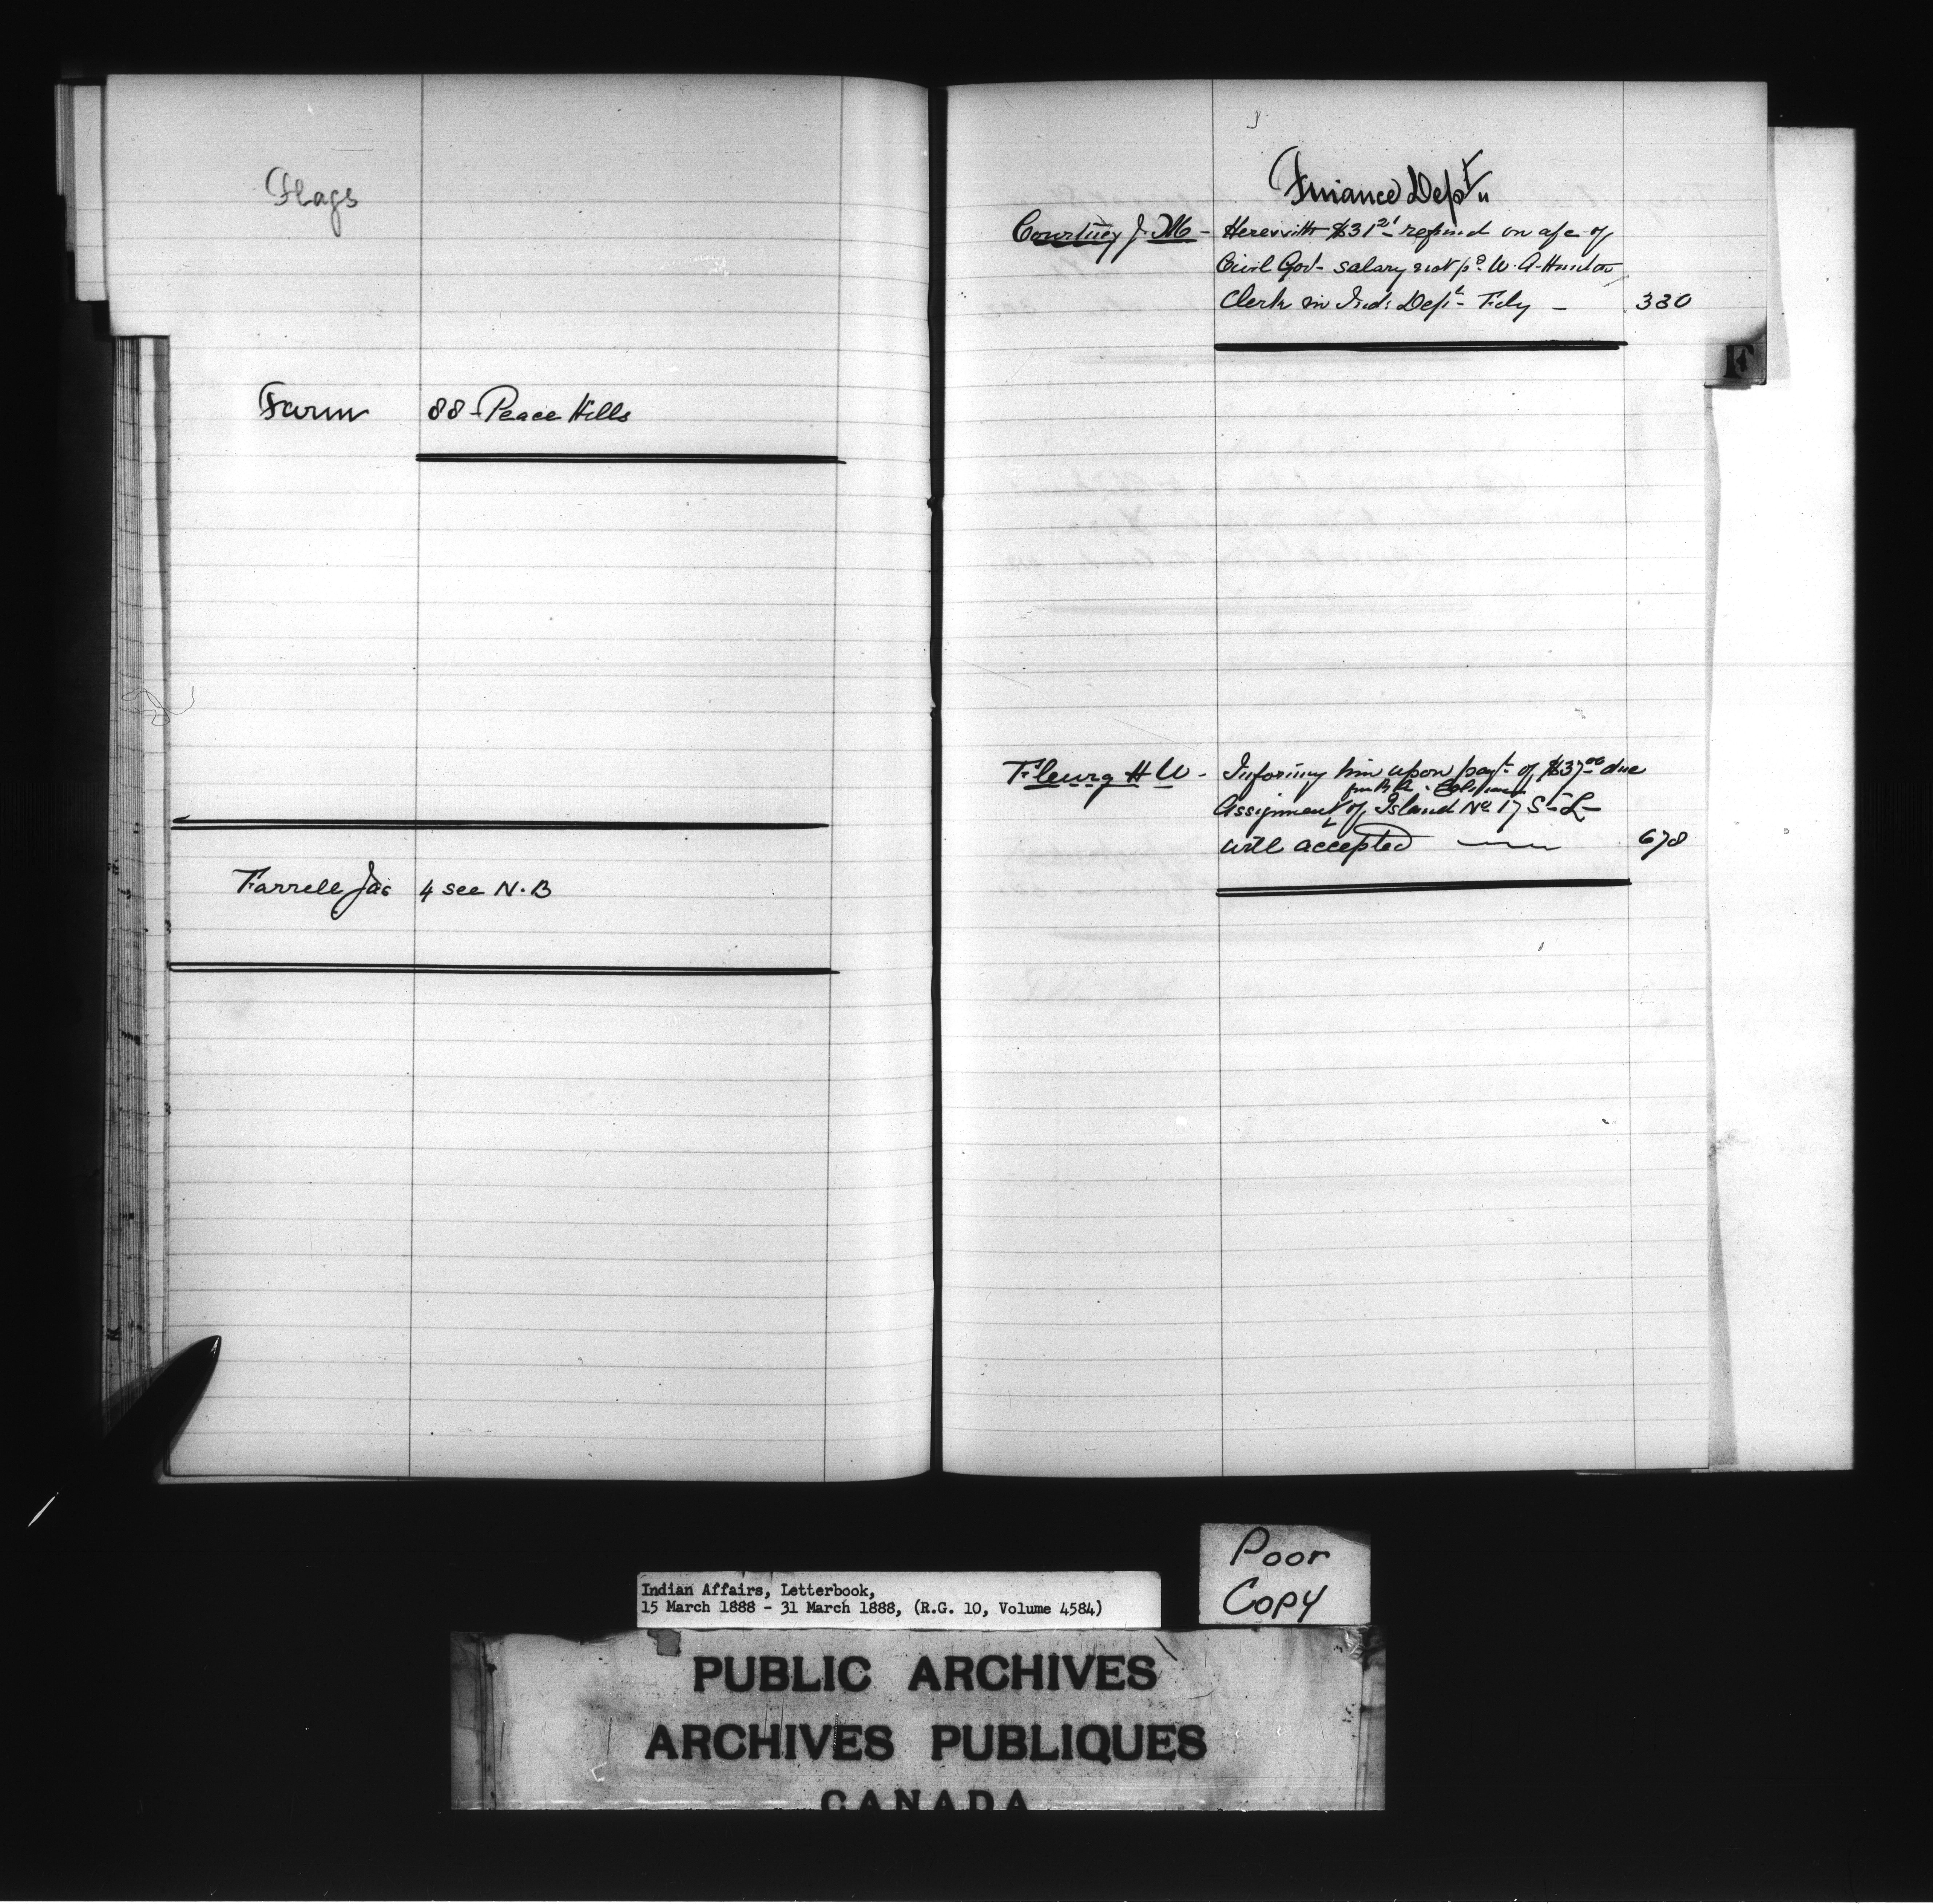 Flags
Farm 88 - Peace Hills
Farrell Jas 4 see N.B
Finance Dept
Courtney J. M - Herewith $31 21 refund on a/c of
Civil Govt salary not pd W. A. Hunton
Clerk in Ind: Dept - Fdy - 330
F
Fleury H W - Informing him upon payt of $37 00 due
from
Assignment of Island No 17 S - L -
will accepted 678
Poor
Copy
Indian Affairs, Letterbook,
15 March 1888 - 31 March 1888, (R.G. 10, Volume 4584)
PUBLIC ARCHIVES
ARCHIVES PUBLIQUES
CANADA